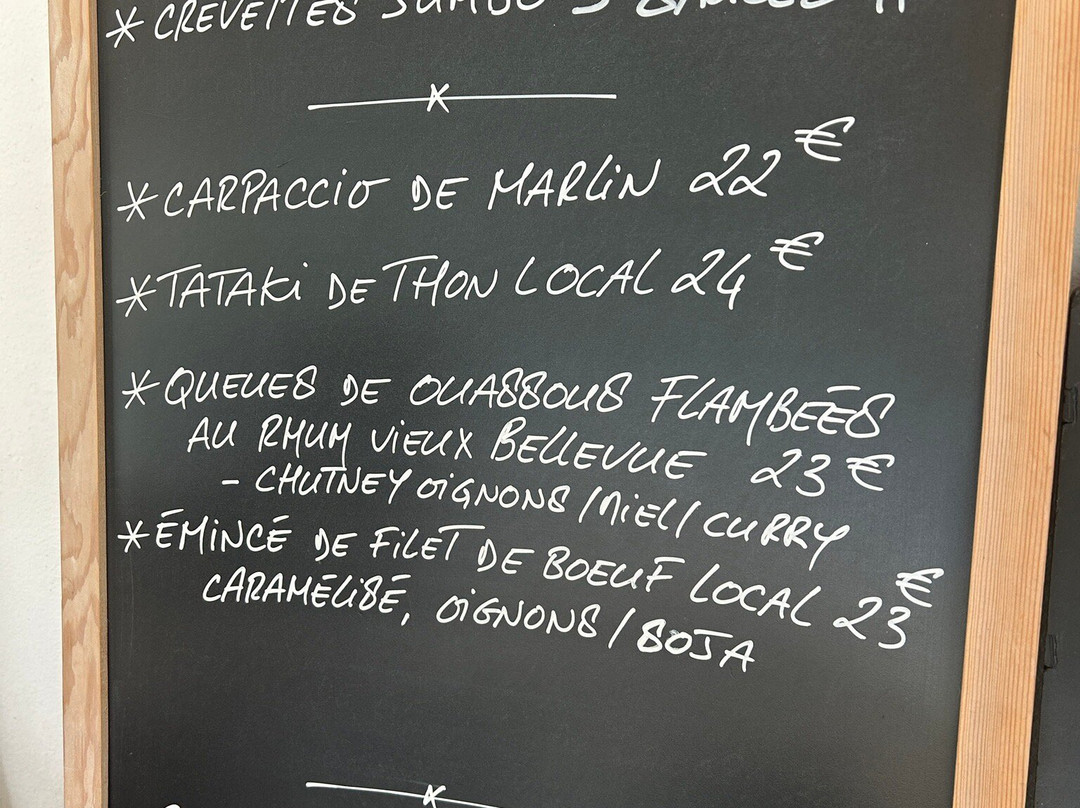 * CREVETTES JUMBO
* CARPACCIO DE MARLIN 22 €
* TATAKI DE THON LOCAL 24 €
* QUEUES DE OUASSOUS FLAMBÉES
AU RHUM VIEUX BELLEVUE 23 €
- CHUTNEY OIGNONS / MIEL / CURRY
* ÉMINCÉ DE FILET DE BOEUF LOCAL 23 €
CARAMÉLISÉ, OIGNONS / SOJA